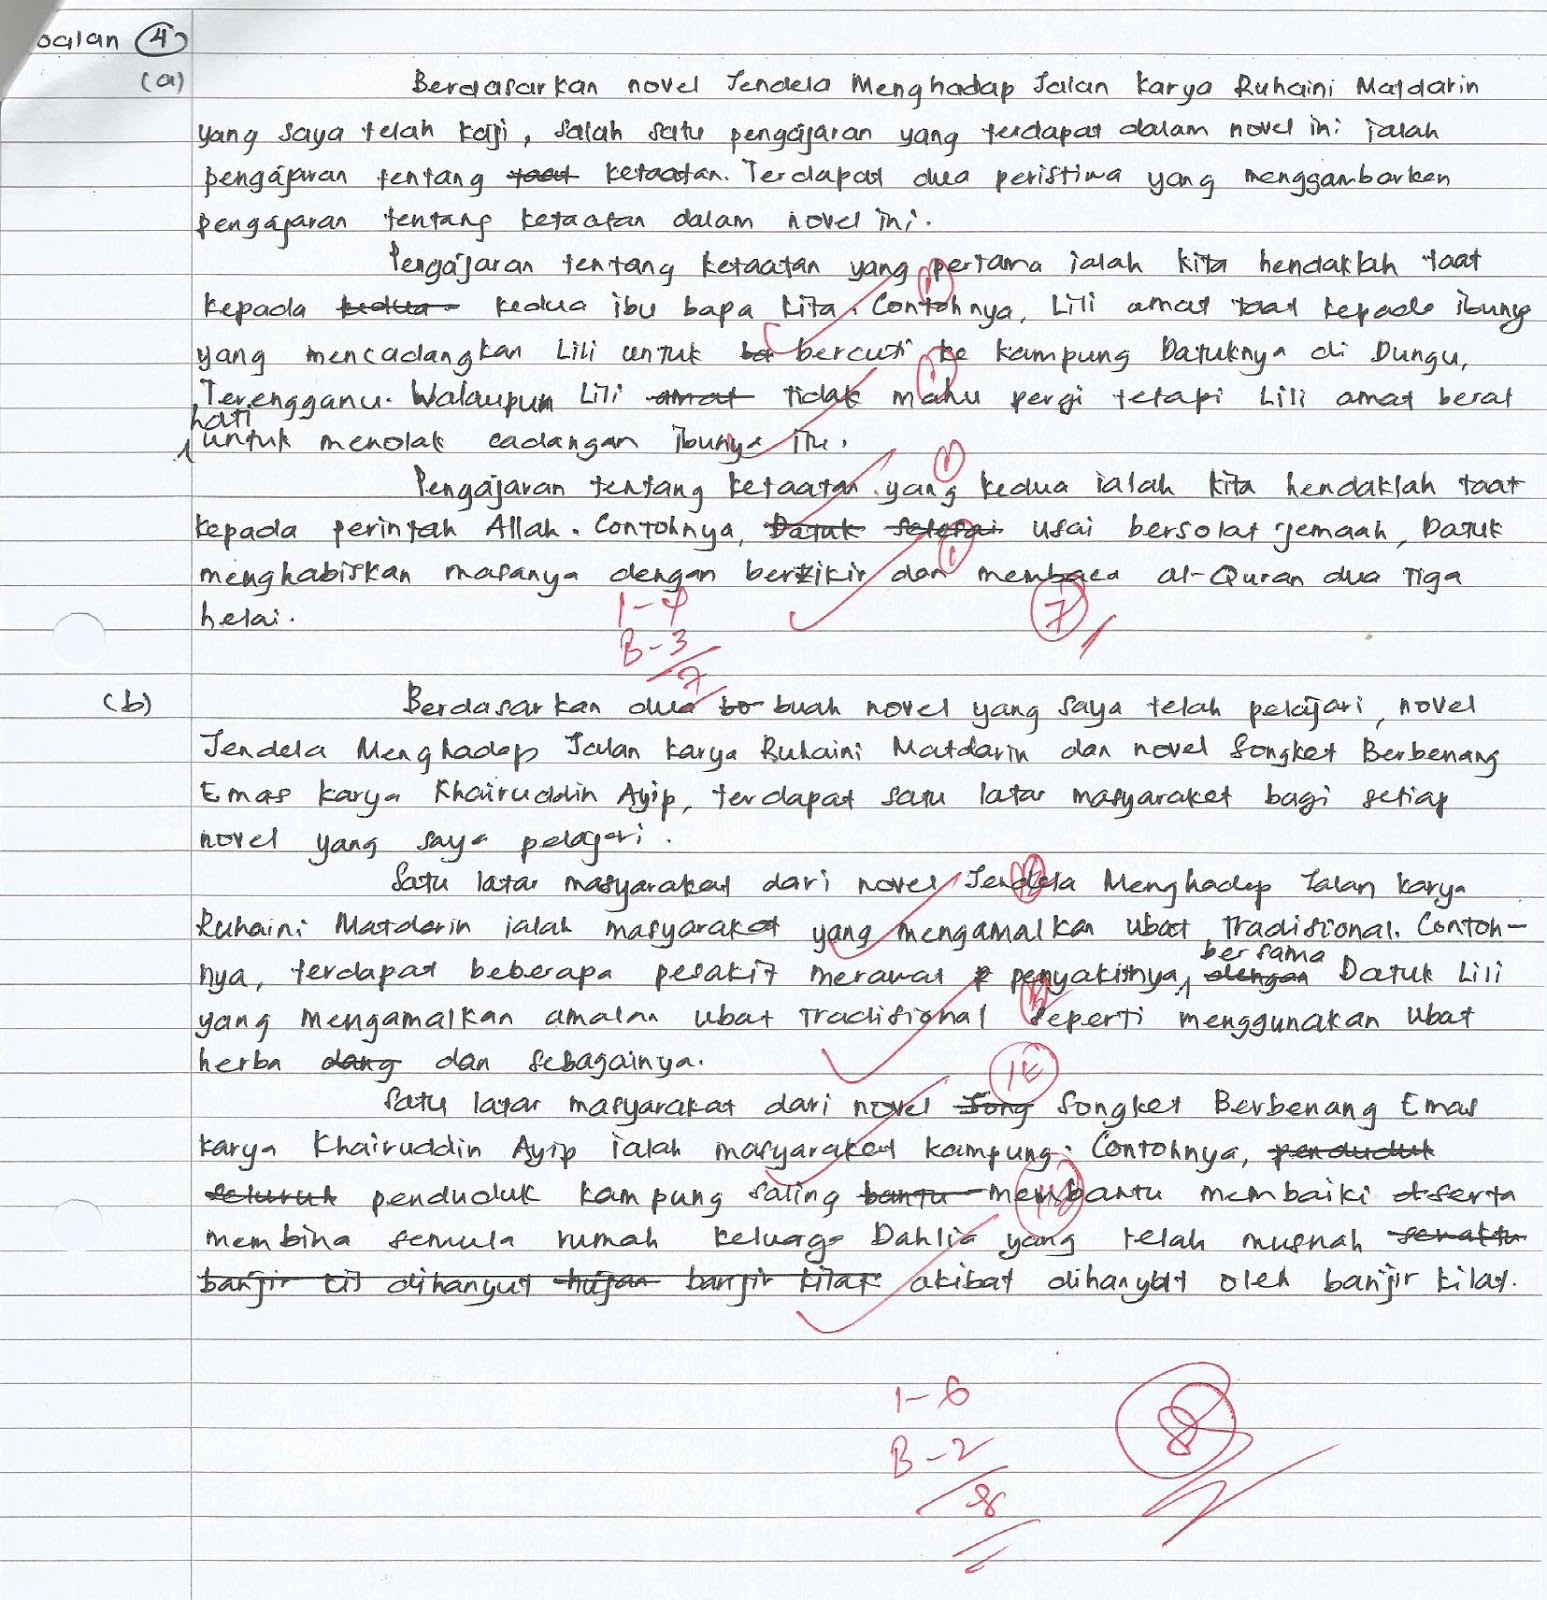 oalan 4
(a) Berdasarkan novel Jendela Menghadap Jalan Karya Ruhaini Matdarin
yang saya telah kaji, salah satu pengajaran yang terdapat dalam novel ini ialah
pengajaran tentang taat ketaatan. Terdapat dua peristiwa yang menggambarkan
pengajaran tentang ketaatan dalam novel ini.
Pengajaran tentang ketaatan yang pertama ialah kita hendaklah taat
kepada kedua kedua ibu bapa kita. Contohnya, Lili amat taat kepada ibunya
yang mencadangkan Lili untuk bercuti ke kampung Datuknya di Dungu,
Terengganu. Walaupun Lili amat tidak mahu pergi tetapi Lili amat berat
hati
untuk menolak cadangan ibunya itu.
Pengajaran tentang ketaatan yang kedua ialah kita hendaklah taat
kepada perintah Allah. Contohnya, Datuk selesai usai bersolat jemaah, Datuk
menghabiskan masanya dengan berzikir dan membaca al-Quran dua tiga
helai.
1-4
B-3
7
7
(b) Berdasarkan dua bo buah novel yang saya telah pelajari, novel
Jendela Menghadap Jalan karya Ruhaini Matdarin dan novel Songket Berbenang
Emas karya Khairuddin Ayip, terdapat satu latar masyarakat bagi setiap
novel yang saya pelajari.
Satu latar masyarakat dari novel Jendela Menghadap Jalan karya
Ruhaini Matdarin ialah masyarakat yang mengamalkan ubat tradisional. Contoh-
bersama
nya, terdapat beberapa pesakit merawat p penyakitnya dengan Datuk Lili
yang mengamalkan amalan ubat tradisional seperti menggunakan ubat
herba dang dan sebagainya.
Satu latar masyarakat dari novel Song Songket Berbenang Emas
karya Khairuddin Ayip ialah masyarakat kampung. Contohnya, penduduk
seluruh penduduk kampung saling bantu membantu membaiki serta
membina semula rumah keluarga Dahlia yang telah musnah sewaktu
banjir kil dihanyut hujan banjir kilat akibat dihanyut oleh banjir kilat.
1-6
B-2
8
8